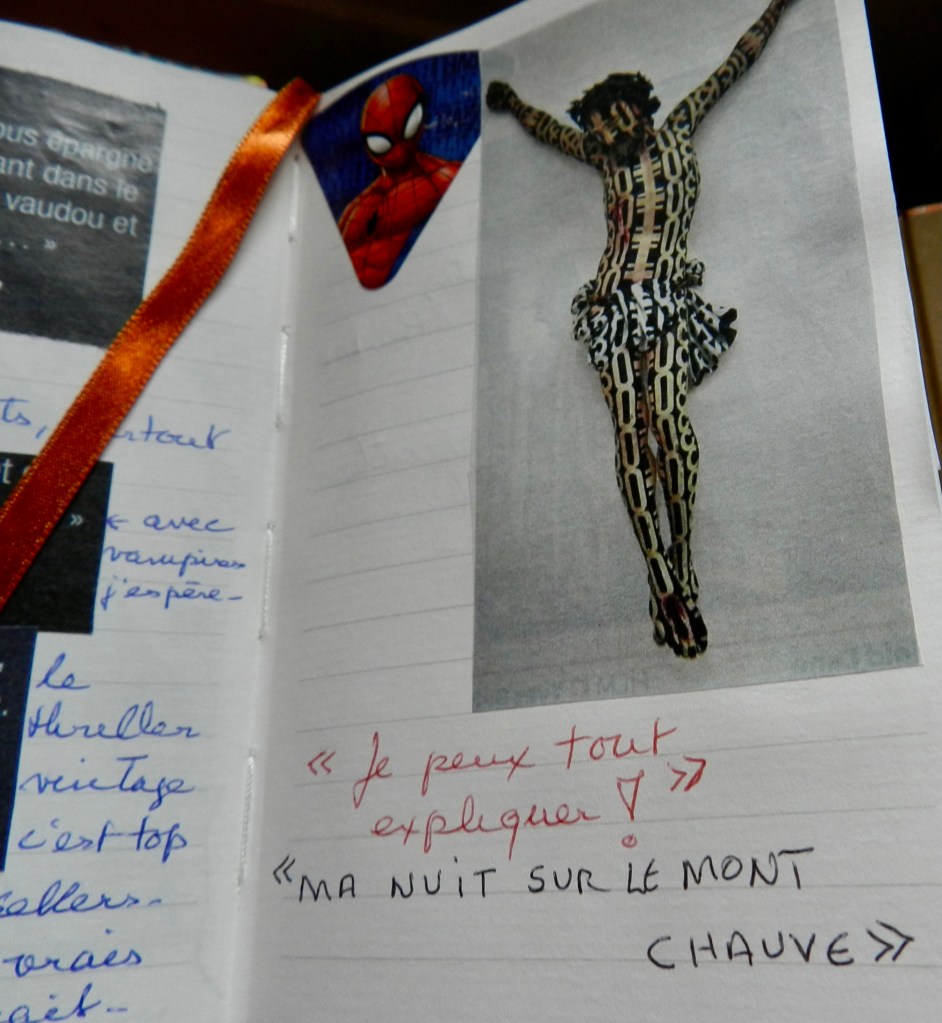 ous épargne
ant dans le
vaudou et
... »
ts, surtout
»
← avec
vampires
j'espère-
le
thriller
vintage
c'est top
vrais
« Je peux tout
expliquer ! »
« MA NUIT SUR LE MONT
CHAUVE »